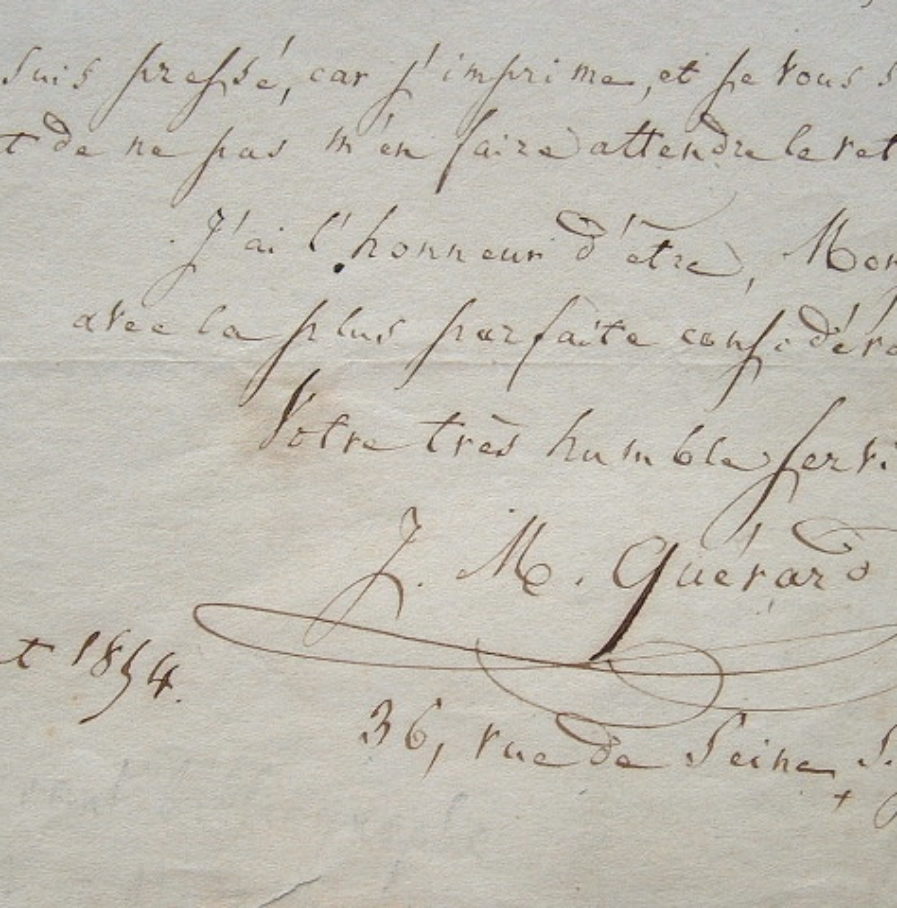 suis pressé, car j'imprime, et je vous s
t de ne pas m'en faire attendre le ret
J'ai l'honneur d'être, Mon
avec la plus parfaite considéra
Votre très humble servi
J. M. Quérard
t 1854.
36, rue de Seine, S.